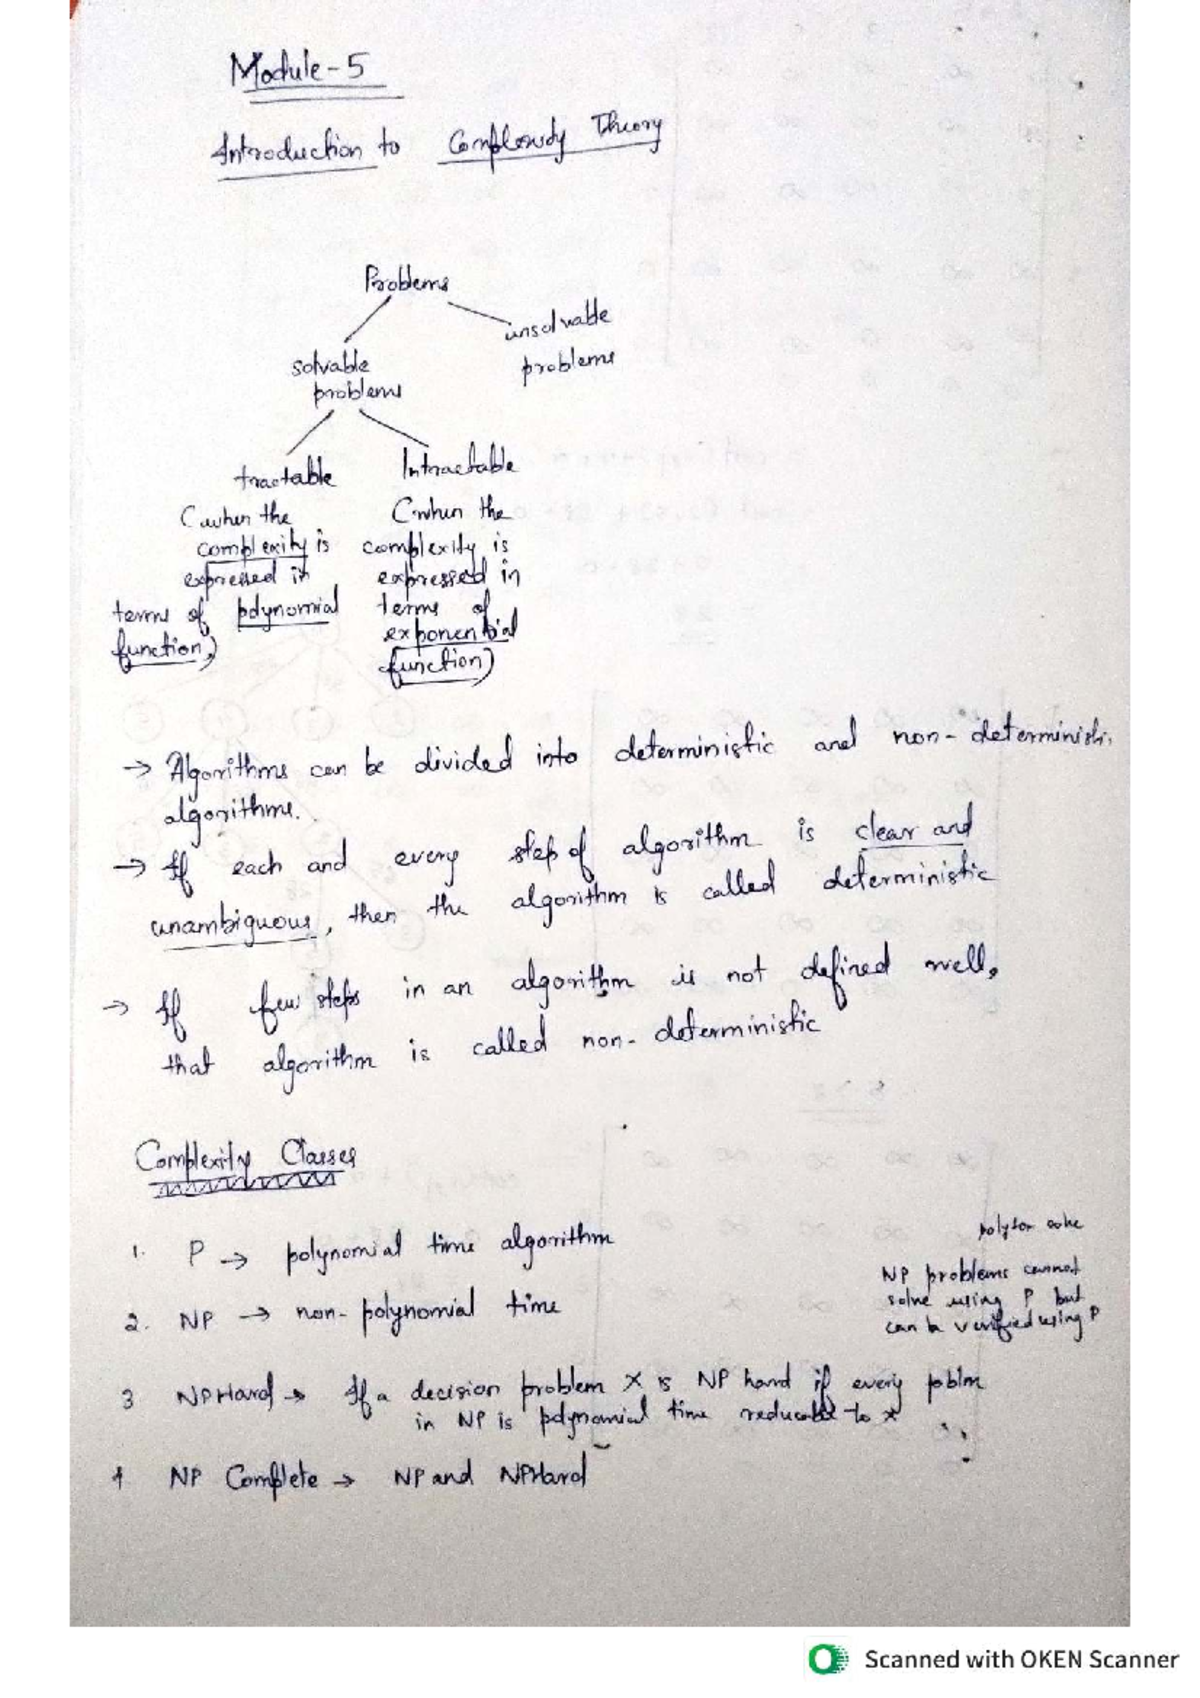 Module-5
Introduction to Complexity Theory
Problems
unsolvable
problems
solvable
problems
tractable
Intractable
(when the
complexity is
expressed in
terms of polynomial
function)
(when the
complexity is
expressed in
terms of
exponential
function)
→ Algorithms can be divided into deterministic and non-deterministic
algorithms.
→ If each and every step of algorithm is clear and
unambiguous, then the algorithm is called deterministic
→ If few steps in an algorithm is not defined well,
that algorithm is called non-deterministic
Complexity Classes
1. P → polynomial time algorithm
2. NP → non-polynomial time
NP problems cannot
solve using P but
can be verified using P
3 NPHard → If a decision problem X is NP hard if every poblm
in NP is polynomial time reducable to X
4 NP Complete → NP and NPHard
Scanned with OKEN Scanner